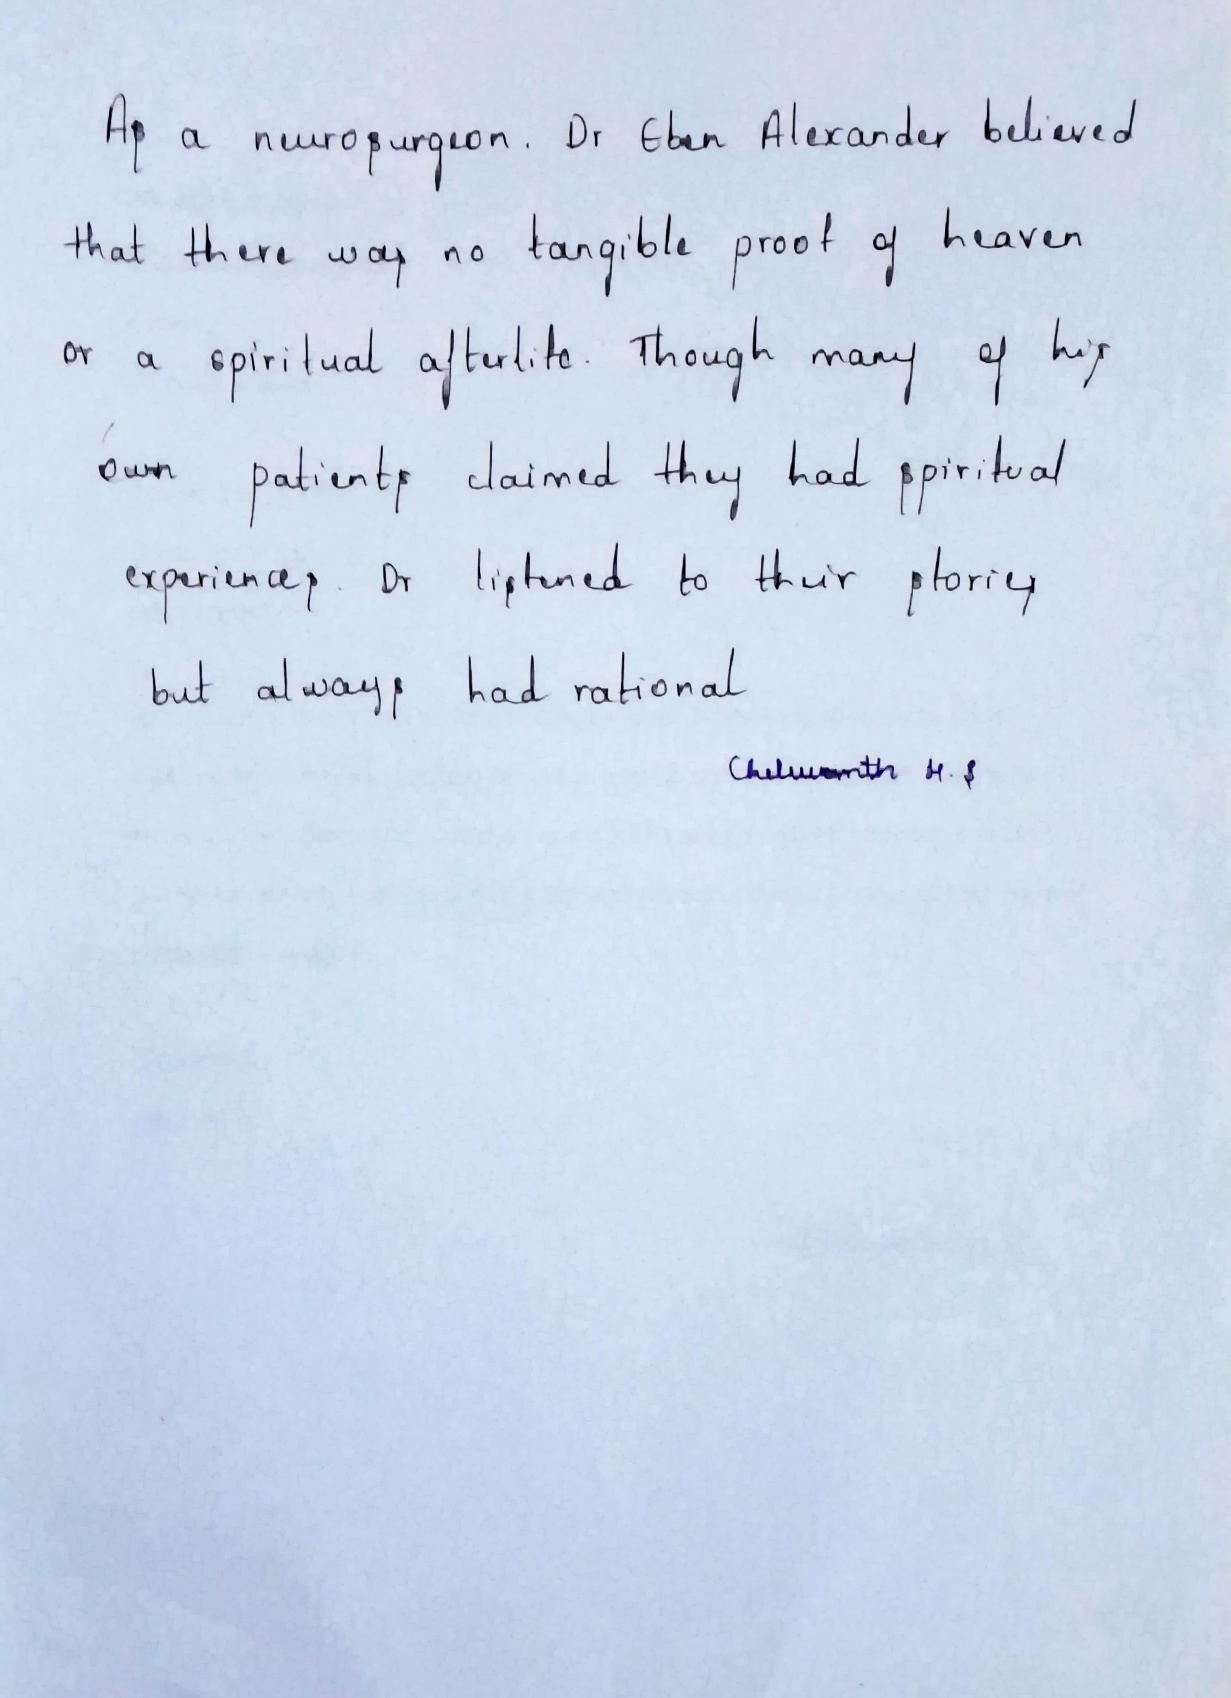 As a neurosurgeon. Dr Eben Alexander believed
that there was no tangible proof of heaven
or a spiritual afterlife. Though many of his
own patients claimed they had spiritual
experiences. Dr listened to their stories
but always had rational
H. S